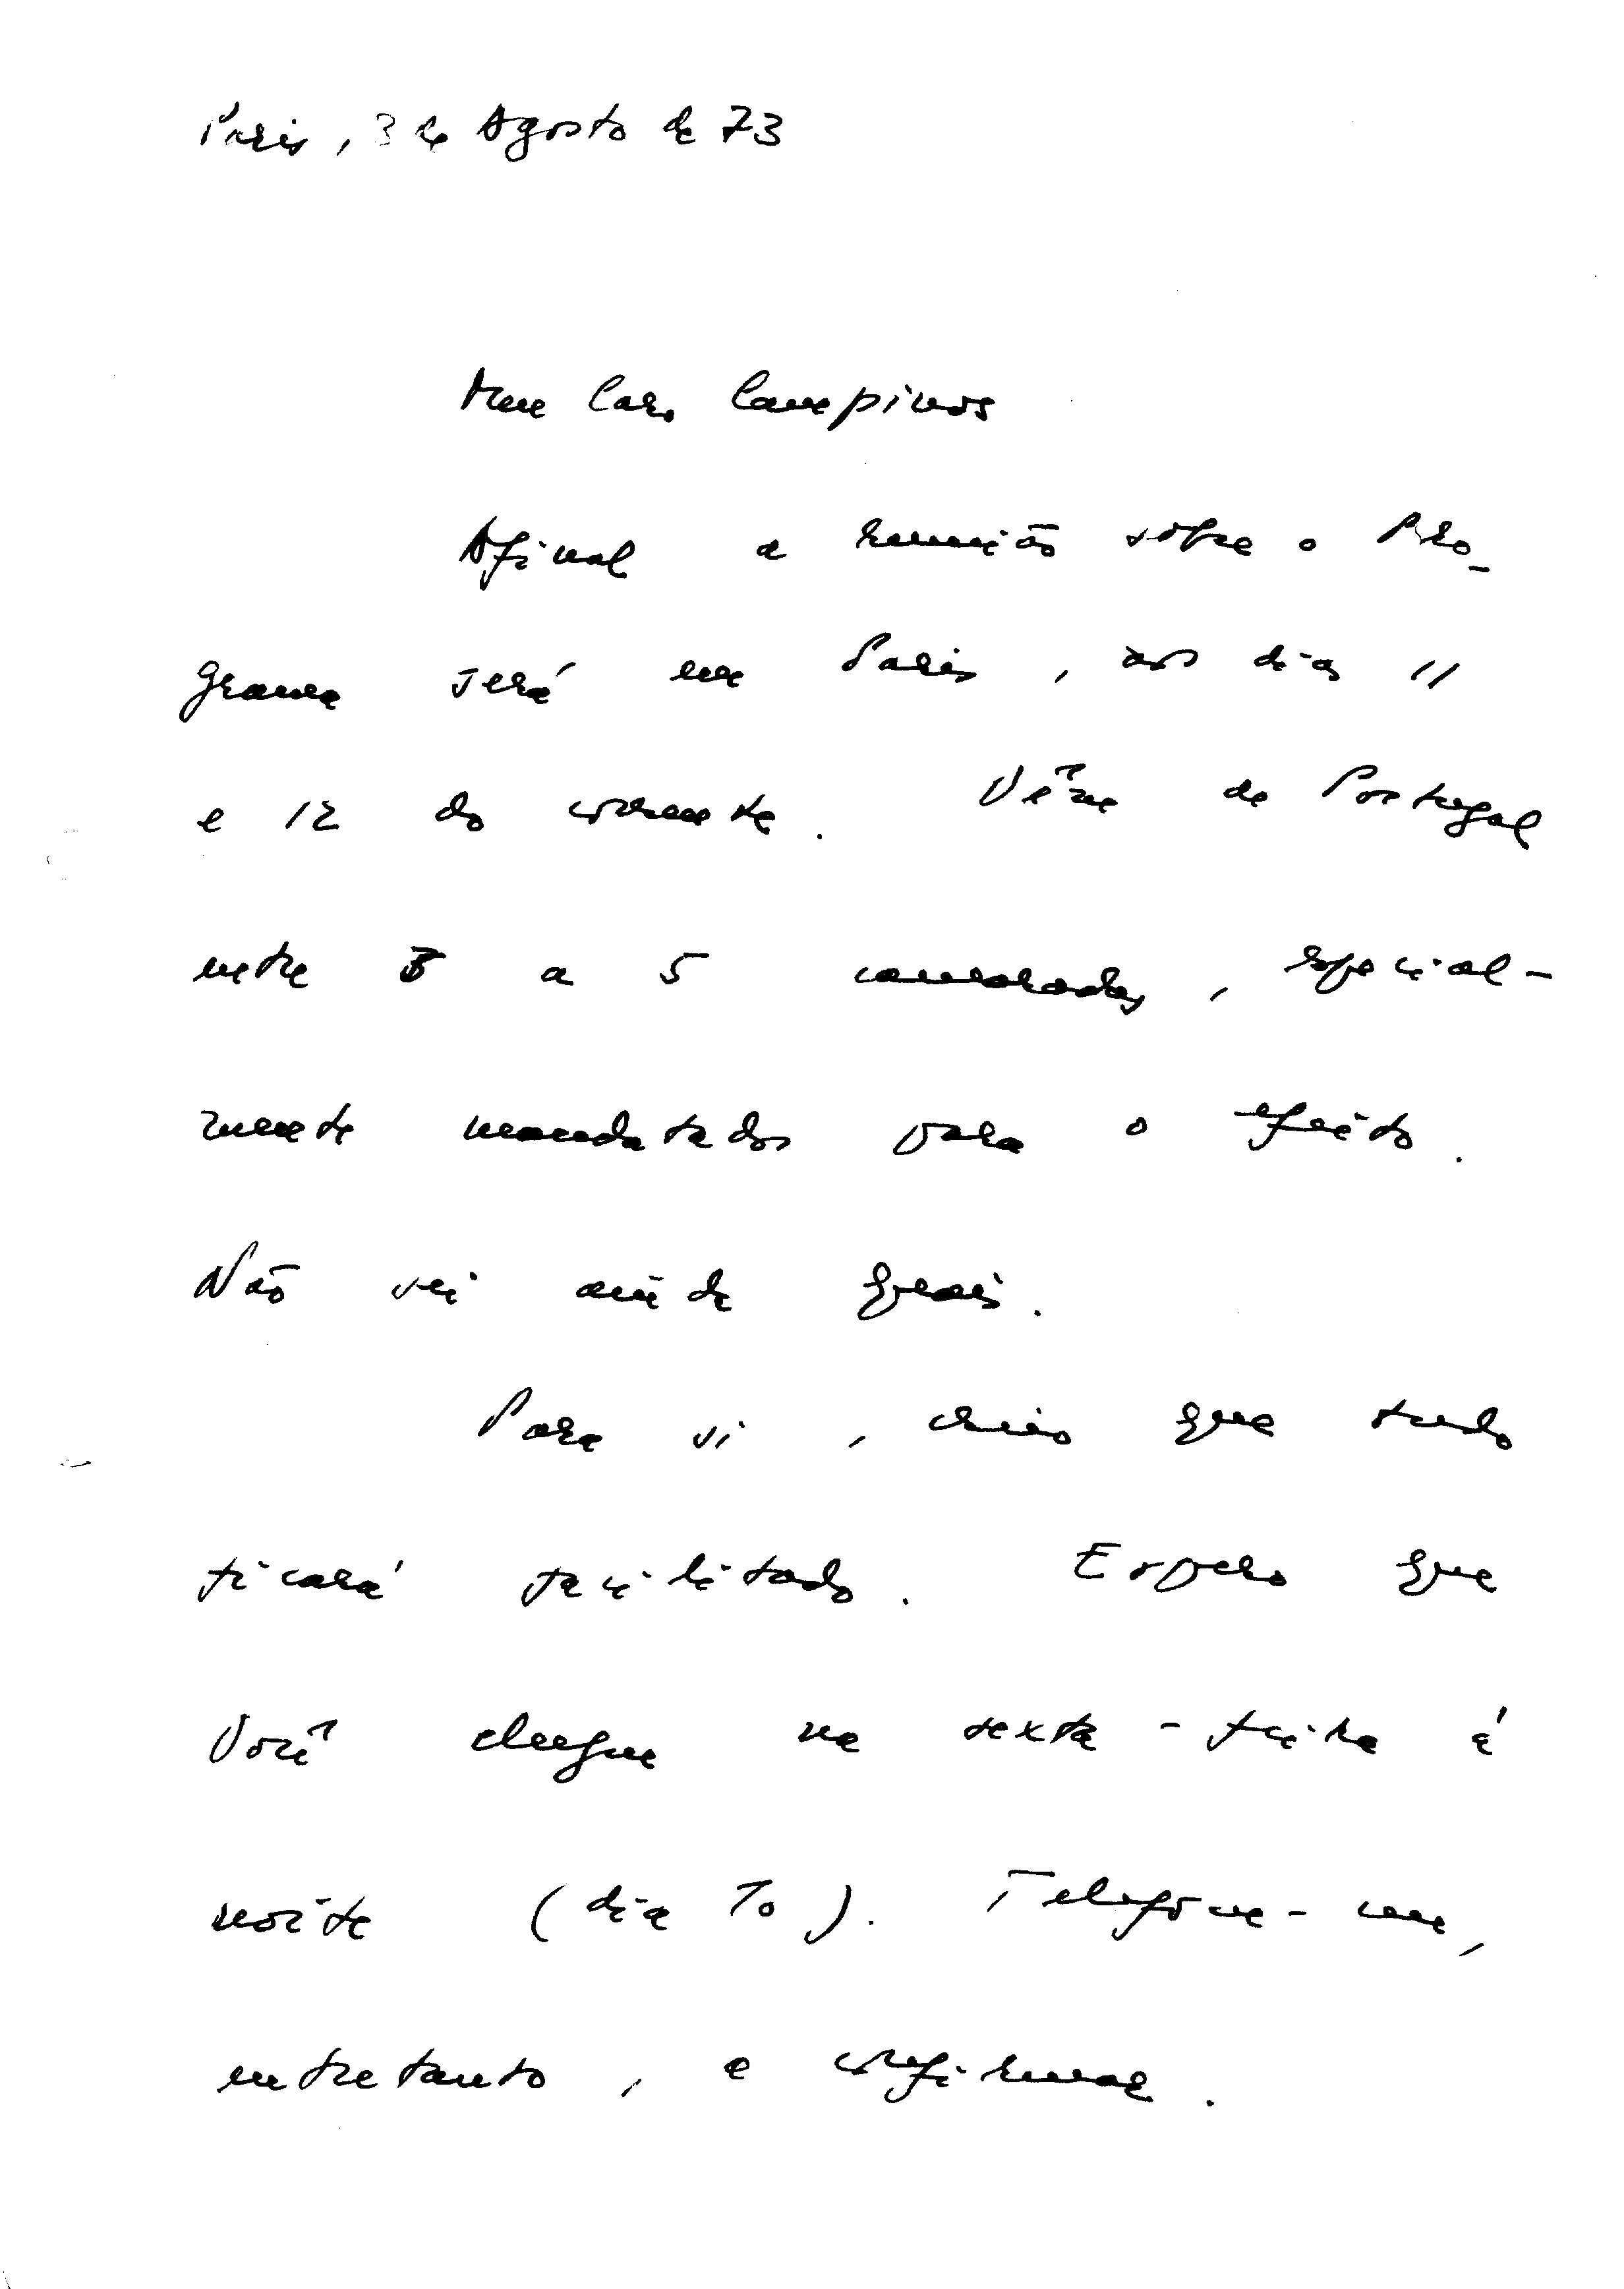 Paris, 3 de Agosto de 73
Meu Caro Campinos
Afinal a reunião sôbre o Pro-
grama será em Paris, aos dias 11
e 12 do corrente. Vêm de Portugal
entre 3 a 5 camaradas, especial-
mente mandatados para o efeito.
Não sei ainda quais.
Para si, creio que tudo
ficará facilitado. Espero que
Você chegue na sexta-feira à
noite (dia 10). Telefone-me,
entretanto, a confirmar.